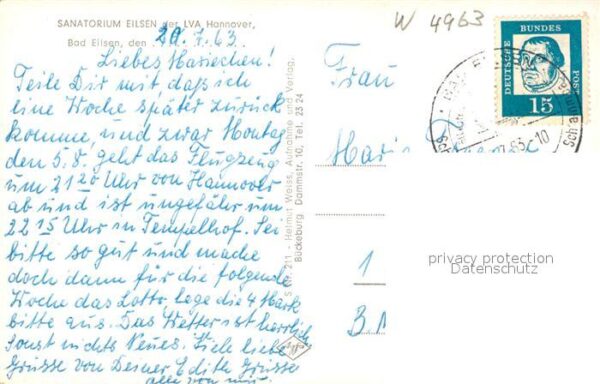 SANATORIUM EILSEN der LVA Hannover,
Bad Eilsen, den 29.7.63.
Liebes Mariechen!
Teile Dir mit, daß ich
eine Woche später zurück
komme, und zwar Montag
den 5.8. geht das Flugzeug
um 21 20 Uhr von Hannover
ab und ist ungefähr um
22 15 Uhr in Tempelhof. Sei
bitte so gut und mache
doch dann für die folgende
Woche das Lotto, lege die 4 Mark
bitte aus. Das Wetter ist herrlich
sonst nichts Neues. Viele liebe
Grüsse von Deiner Edith Grüsse
alle von mir.
S Nr. 211 - Helmut Weiss, Aufnahme und Verlag,
Bückeburg, Dammstr. 10, Tel. 25 24
W 4963
DEUTSCHE BUNDES POST
15
Frau
Maria
1
privacy protection
Datenschutz